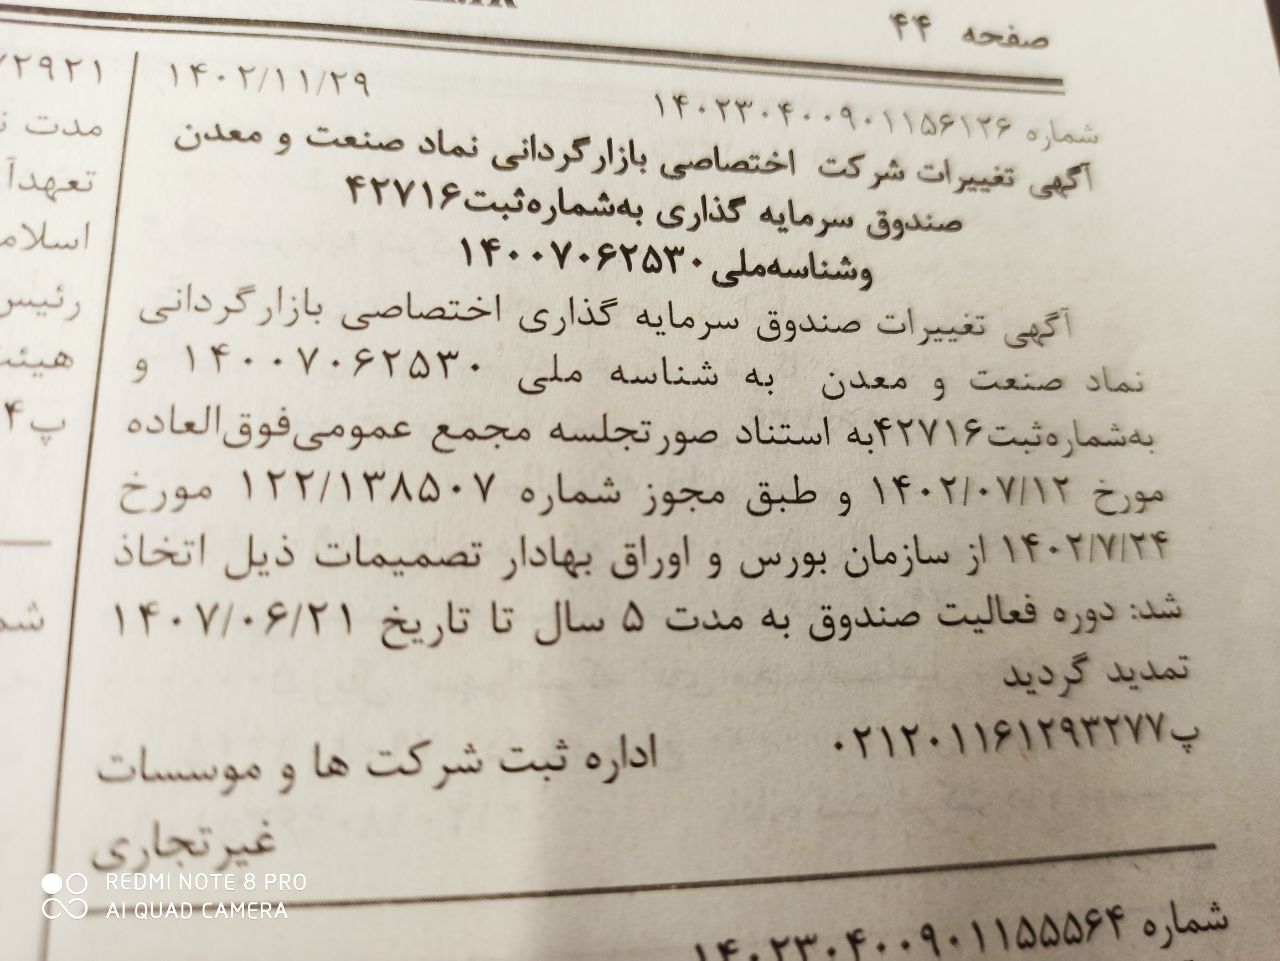 صفحه ۴۴
۱۴۰۲/۱۱/۲۹
شماره ۱۴۰۲۳۰۴۰۰۹۰۱۱۵۶۱۲۶
آگهی تغییرات شرکت اختصاصی بازارگردانی نماد صنعت و معدن
صندوق سرمایه گذاری به‌شماره‌ثبت۴۲۷۱۶
وشناسه‌ملی۱۴۰۰۷۰۶۲۵۳۰
آگهی تغییرات صندوق سرمایه گذاری اختصاصی بازارگردانی
نماد صنعت و معدن به شناسه ملی ۱۴۰۰۷۰۶۲۵۳۰ و
به‌شماره‌ثبت۴۲۷۱۶به استناد صورتجلسه مجمع عمومی‌فوق‌العاده
مورخ ۱۴۰۲/۰۷/۱۲ و طبق مجوز شماره ۱۲۲/۱۳۸۵۰۷ مورخ
۱۴۰۲/۷/۲۴ از سازمان بورس و اوراق بهادار تصمیمات ذیل اتخاذ
شد: دوره فعالیت صندوق به مدت ۵ سال تا تاریخ ۱۴۰۷/۰۶/۲۱
تمدید گردید
پ۰۲۱۲۰۱۱۶۱۲۹۳۲۷۷ اداره ثبت شرکت ها و موسسات
غیرتجاری
شماره ۱۴۰۲۳۰۴۰۰۹۰۱۱۵۵۵۶۴
مدت
رئیس
REDMI NOTE 8 PRO
AI QUAD CAMERA